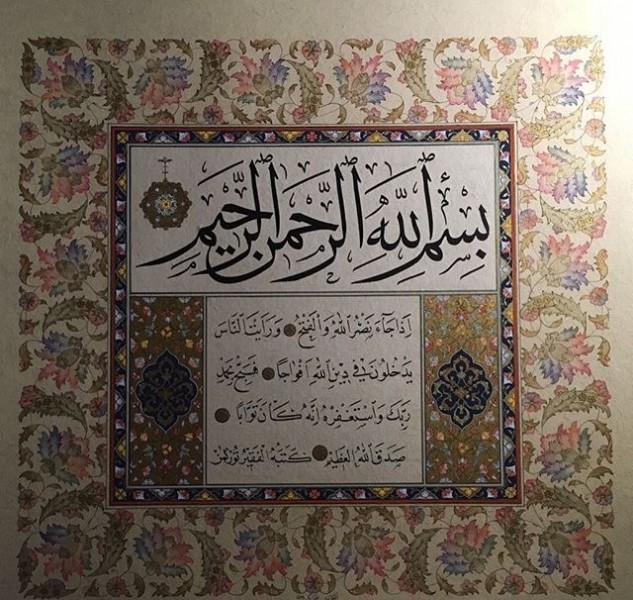 بِسْمِ اللهِ الرَّحْمٰنِ الرَّحِيمِ
اِذَا جَاءَ نَصْرُ اللهِ وَالْفَتْحُ وَرَاَيْتَ النَّاسَ
يَدْخُلُونَ فِي دِينِ اللهِ اَفْوَاجًا فَسَبِّحْ بِحَمْدِ
رَبِّكَ وَاسْتَغْفِرْهُ اِنَّهُ كَانَ تَوَّابًا
صَدَقَ اللهُ الْعَظِيمُ كَتَبَهُ الْفَقِيرُ